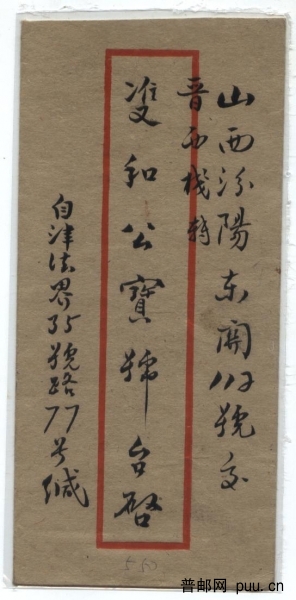 山西汾陽东関112號交
晋西棧轉
双和公寶號台啓
自津法界35號路77号缄
550
普邮网 puu.cn